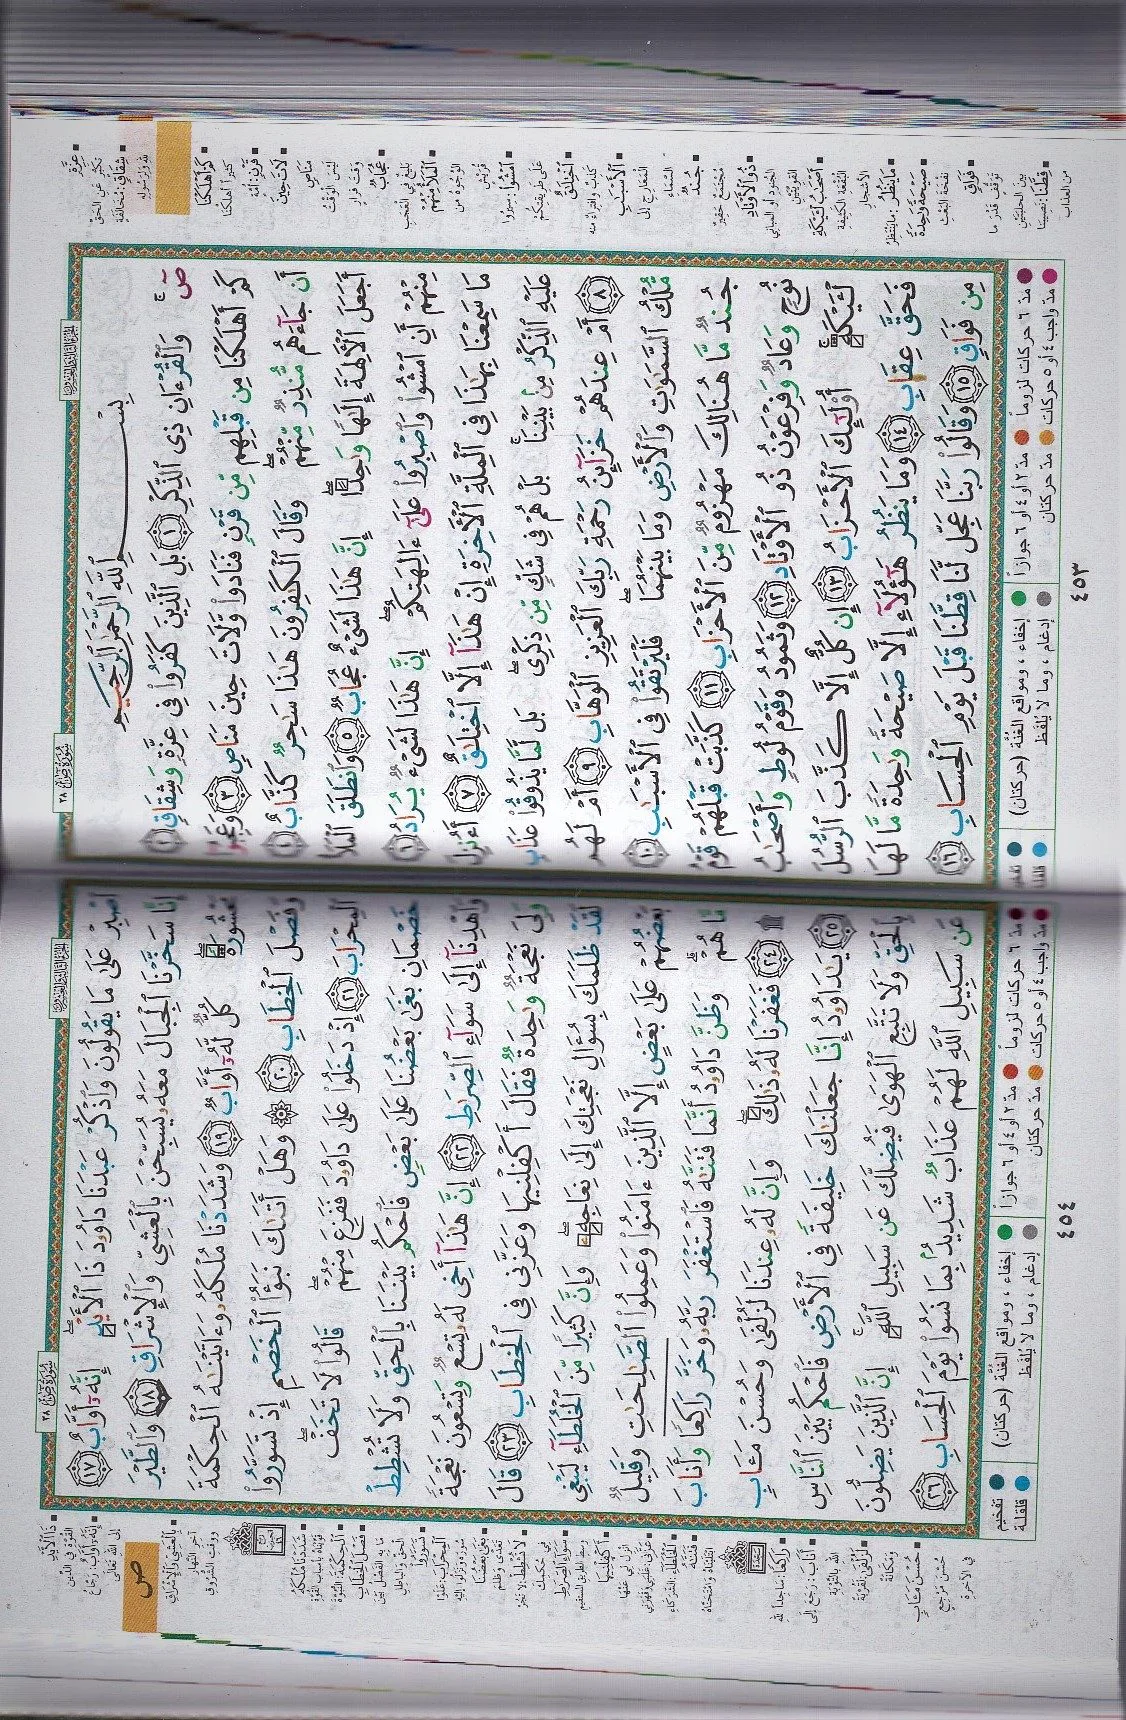 سُورَةُ صٓ ٣٨
بِسْمِ ٱللَّهِ ٱلرَّحْمَٰنِ ٱلرَّحِيمِ
صٓ ۚ وَٱلْقُرْءَانِ ذِى ٱلذِّكْرِ ١ بَلِ ٱلَّذِينَ كَفَرُوا۟ فِى عِزَّةٍ وَشِقَاقٍ ٢
كَمْ أَهْلَكْنَا مِن قَبْلِهِم مِّن قَرْنٍ فَنَادَوا۟ وَّلَاتَ حِينَ مَنَاصٍ ٣ وَعَجِبُوٓا۟
أَن جَآءَهُم مُّنذِرٌ مِّنْهُمْ ۖ وَقَالَ ٱلْكَٰفِرُونَ هَٰذَا سَٰحِرٌ كَذَّابٌ ٤
أَجَعَلَ ٱلْءَالِهَةَ إِلَٰهًا وَٰحِدًا ۖ إِنَّ هَٰذَا لَشَىْءٌ عُجَابٌ ٥ وَٱنطَلَقَ ٱلْمَلَأُ
مِنْهُمْ أَنِ ٱمْشُوا۟ وَٱصْبِرُوا۟ عَلَىٰٓ ءَالِهَتِكُمْ ۖ إِنَّ هَٰذَا لَشَىْءٌ يُرَادُ ٦
مَا سَمِعْنَا بِهَٰذَا فِى ٱلْمِلَّةِ ٱلْءَاخِرَةِ إِنْ هَٰذَآ إِلَّا ٱخْتِلَٰقٌ ٧ أَءُنزِلَ
عَلَيْهِ ٱلذِّكْرُ مِنۢ بَيْنِنَا ۚ بَلْ هُمْ فِى شَكٍّ مِّن ذِكْرِى ۖ بَل لَّمَّا يَذُوقُوا۟ عَذَابِ
٨ أَمْ عِندَهُمْ خَزَآئِنُ رَحْمَةِ رَبِّكَ ٱلْعَزِيزِ ٱلْوَهَّابِ ٩ أَمْ لَهُم
مُّلْكُ ٱلسَّمَٰوَٰتِ وَٱلْأَرْضِ وَمَا بَيْنَهُمَا ۖ فَلْيَرْتَقُوا۟ فِى ٱلْأَسْبَٰبِ ١٠
جُندٌ مَّا هُنَالِكَ مَهْزُومٌ مِّنَ ٱلْأَحْزَابِ ١١ كَذَّبَتْ قَبْلَهُمْ قَوْمُ
نُوحٍ وَعَادٌ وَفِرْعَوْنُ ذُو ٱلْأَوْتَادِ ١٢ وَثَمُودُ وَقَوْمُ لُوطٍ وَأَصْحَٰبُ
لْـَٔيْكَةِ ۚ أُو۟لَٰٓئِكَ ٱلْأَحْزَابُ ١٣ إِن كُلٌّ إِلَّا كَذَّبَ ٱلرُّسُلَ
فَحَقَّ عِقَابِ ١٤ وَمَا يَنظُرُ هَٰٓؤُلَآءِ إِلَّا صَيْحَةً وَٰحِدَةً مَّا لَهَا
مِن فَوَاقٍ ١٥ وَقَالُوا۟ رَبَّنَا عَجِّل لَّنَا قِطَّنَا قَبْلَ يَوْمِ ٱلْحِسَابِ ١٦
عِزَّةٍ
تكبّر عن الحقّ
شِقَاقٍ: مخالفة
لله ولرسوله
كَمْ أَهْلَكْنَا
كثيرا أهلكنا
قَرْنٍ: أمّة
لَاتَ حِينَ
مَنَاصٍ
ليس الوقت
وقت فرار
عُجَابٌ
بليغ في العجب
ٱلْمَلَأُ مِنْهُمْ
الوجوه من
قريش
ٱمْشُوا۟: سيروا
على طريقتكم
ٱخْتِلَٰقٌ
كذب وافتراء منه
ٱلْأَسْبَٰبِ
المعارج إلى
السماء
جُندٌ
مجتمع حقير
ذُو ٱلْأَوْتَادِ
الجنود أو المباني
القويّة
أَصْحَٰبُ لْـَٔيْكَةِ
البقعة الكثيفة
الأشجار
مَا يَنظُرُ: ما ينتظر
صَيْحَةً وَٰحِدَةً
نفخة البعث
فَوَاقٍ
توقّف قدر ما
بين الحلبتين
قِطَّنَا: نصيبنا
من العذاب
مدّ ٦ حركات لزوماً مدّ ٢ أو ٤ أو ٦ جوازاً إخفاء، ومواقع الغُنَّة (حركتان)
مدّ واجب ٤ أو ٥ حركات مدّ حركتان إدغام، وما لا يُلفَظ
٤٥٣
سُورَةُ صٓ ٣٨
ٱصْبِرْ عَلَىٰ مَا يَقُولُونَ وَٱذْكُرْ عَبْدَنَا دَاوُۥدَ ذَا ٱلْأَيْدِ ۖ إِنَّهُۥٓ أَوَّابٌ ١٧
إِنَّا سَخَّرْنَا ٱلْجِبَالَ مَعَهُۥ يُسَبِّحْنَ بِٱلْعَشِىِّ وَٱلْإِشْرَاقِ ١٨ وَٱلطَّيْرَ
مَحْشُورَةً ۖ كُلٌّ لَّهُۥٓ أَوَّابٌ ١٩ وَشَدَدْنَا مُلْكَهُۥ وَءَاتَيْنَٰهُ ٱلْحِكْمَةَ
وَفَصْلَ ٱلْخِطَابِ ٢٠ ۞ وَهَلْ أَتَىٰكَ نَبَؤُا۟ ٱلْخَصْمِ إِذْ تَسَوَّرُوا۟
ٱلْمِحْرَابَ ٢١ إِذْ دَخَلُوا۟ عَلَىٰ دَاوُۥدَ فَفَزِعَ مِنْهُمْ ۖ قَالُوا۟ لَا تَخَفْ ۖ
خَصْمَانِ بَغَىٰ بَعْضُنَا عَلَىٰ بَعْضٍ فَٱحْكُم بَيْنَنَا بِٱلْحَقِّ وَلَا تُشْطِطْ
وَٱهْدِنَآ إِلَىٰ سَوَآءِ ٱلصِّرَٰطِ ٢٢ إِنَّ هَٰذَآ أَخِى لَهُۥ تِسْعٌ وَتِسْعُونَ نَعْجَةً
وَلِىَ نَعْجَةٌ وَٰحِدَةٌ فَقَالَ أَكْفِلْنِيهَا وَعَزَّنِى فِى ٱلْخِطَابِ ٢٣ قَالَ
لَقَدْ ظَلَمَكَ بِسُؤَالِ نَعْجَتِكَ إِلَىٰ نِعَاجِهِۦ ۖ وَإِنَّ كَثِيرًا مِّنَ ٱلْخُلَطَآءِ لَيَبْغِى
بَعْضُهُمْ عَلَىٰ بَعْضٍ إِلَّا ٱلَّذِينَ ءَامَنُوا۟ وَعَمِلُوا۟ ٱلصَّٰلِحَٰتِ وَقَلِيلٌ
مَّا هُمْ ۗ وَظَنَّ دَاوُۥدُ أَنَّمَا فَتَنَّٰهُ فَٱسْتَغْفَرَ رَبَّهُۥ وَخَرَّ رَاكِعًا وَأَنَابَ
۩ ٢٤ فَغَفَرْنَا لَهُۥ ذَٰلِكَ ۖ وَإِنَّ لَهُۥ عِندَنَا لَزُلْفَىٰ وَحُسْنَ مَـَٔابٍ
٢٥ يَٰدَاوُۥدُ إِنَّا جَعَلْنَٰكَ خَلِيفَةً فِى ٱلْأَرْضِ فَٱحْكُم بَيْنَ ٱلنَّاسِ
بِٱلْحَقِّ وَلَا تَتَّبِعِ ٱلْهَوَىٰ فَيُضِلَّكَ عَن سَبِيلِ ٱللَّهِ ۚ إِنَّ ٱلَّذِينَ يَضِلُّونَ
عَن سَبِيلِ ٱللَّهِ لَهُمْ عَذَابٌ شَدِيدٌۢ بِمَا نَسُوا۟ يَوْمَ ٱلْحِسَابِ ٢٦
ذَا ٱلْأَيْدِ
القوّة في الدّين
إِنَّهُۥٓ أَوَّابٌ: رجّاع
إلى الله تعالى
صٓ
بِٱلْعَشِىِّ وَٱلْإِشْرَاقِ
آخر النهار
ووقت الشروق
شَدَدْنَا مُلْكَهُۥ
قوّيناه بأسباب القوّة
ٱلْحِكْمَةَ: النبوّة
فَصْلَ ٱلْخِطَابِ
تَسَوَّرُوا۟
لَا تُشْطِطْ: لا تجُر
في حكمك
سَوَآءِ ٱلصِّرَٰطِ
وسط الطريق المستقيم
أَكْفِلْنِيهَا
انزل لي عنها
ٱلْخُلَطَآءِ: الشركاء
فَتَنَّٰهُ
ابتليناه وامتحنّاه
رَاكِعًا: ساجداً لله
أَنَابَ: رجع إلى
الله بالتوبة
لَزُلْفَىٰ: لقربة
ومكانة
حُسْنَ مَـَٔابٍ
حسن مرجع
في الآخرة
مدّ ٦ حركات لزوماً مدّ ٢ أو ٤ أو ٦ جوازاً إخفاء، ومواقع الغُنَّة (حركتان) تفخيم
مدّ واجب ٤ أو ٥ حركات مدّ حركتان إدغام، وما لا يُلفَظ قلقلة
٤٥٤